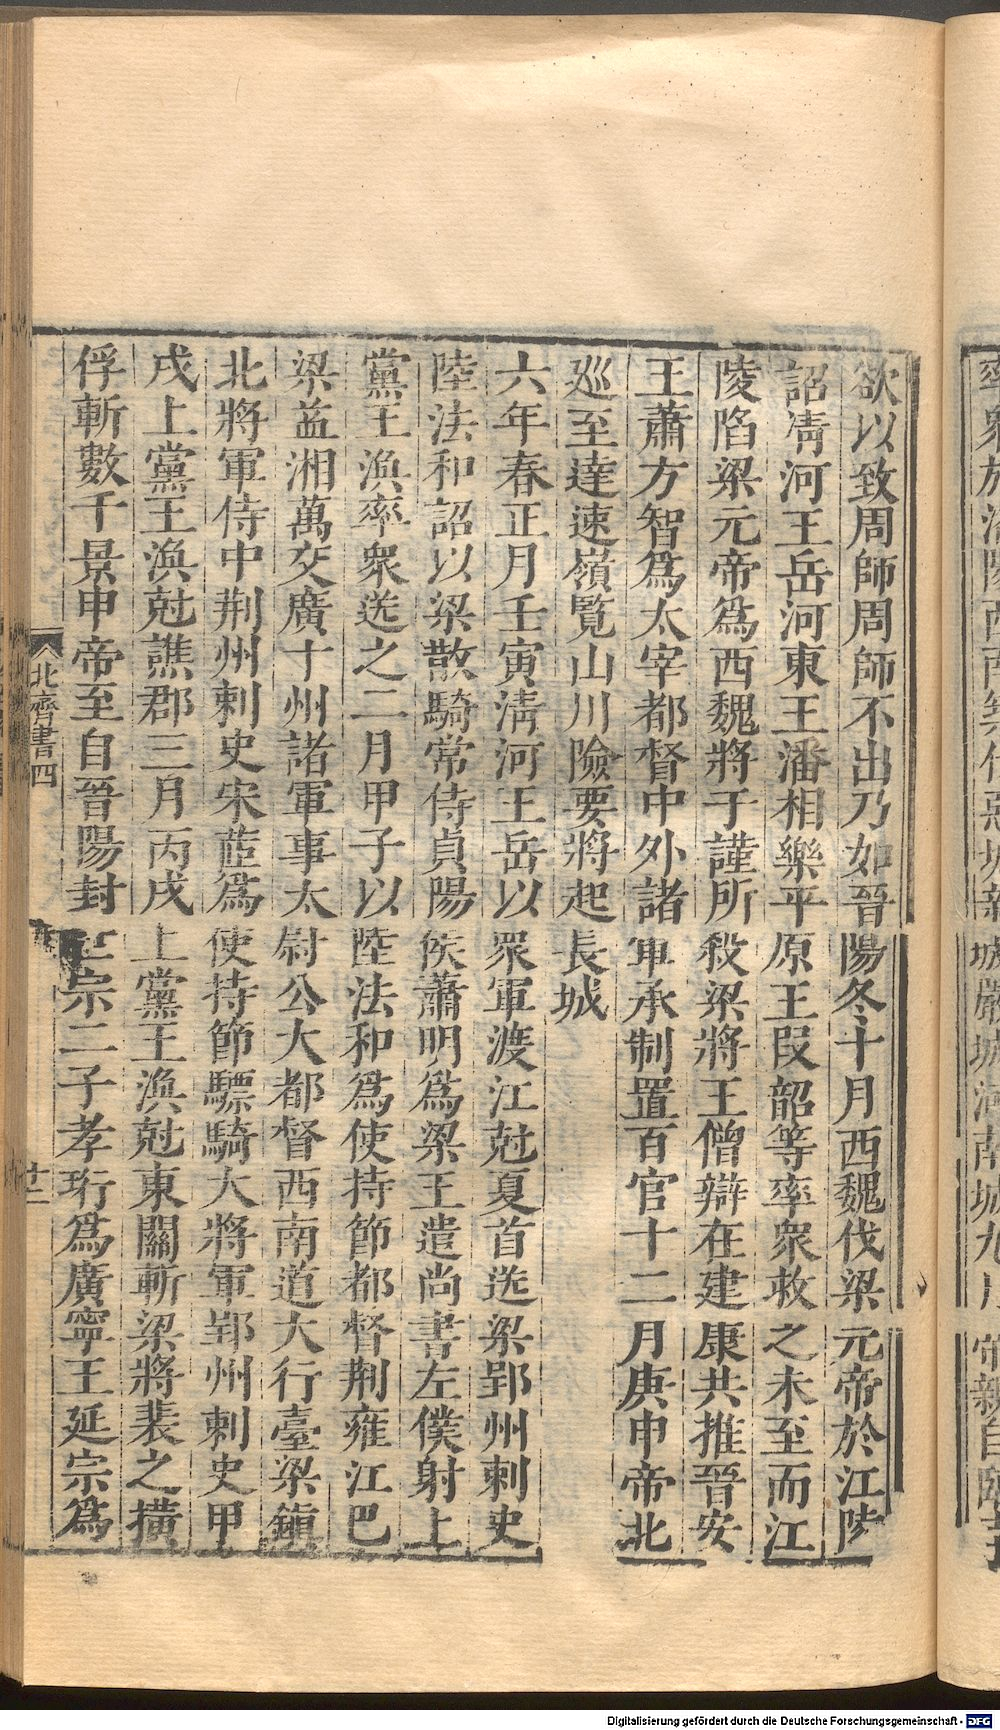 欲以致周師周師不出乃如晉陽冬十月西魏伐梁元帝於江陵
詔清河王岳河東王潘相樂平原王段韶等率衆救之未至而江
陵陷梁元帝爲西魏將于謹所殺梁將王僧辯在建康共推晉安
王蕭方智爲太宰都督中外諸軍承制置百官十二月庚申帝北
廵至達速嶺覽山川險要將起長城
六年春正月壬寅清河王岳以衆軍渡江尅夏首送梁郢州刺史
陸法和詔以梁散騎常侍貞陽侯蕭明爲梁王遣尚書左僕射上
黨王渙率衆送之二月甲子以陸法和爲使持節都督荆雍江巴
梁益湘萬交廣十州諸軍事太尉公大都督西南道大行臺梁鎮
北將軍侍中荆州刺史宋蒞爲使持節驃騎大將軍郢州刺史甲
戌上黨王渙尅譙郡三月丙戌上黨王渙尅東關斬梁將裴之橫
俘斬數千景申帝至自晉陽封世宗二子孝珩爲廣寧王延宗爲
北齊書四
廿二
Digitalisierung gefördert durch die Deutsche Forschungsgemeinschaft - DFG